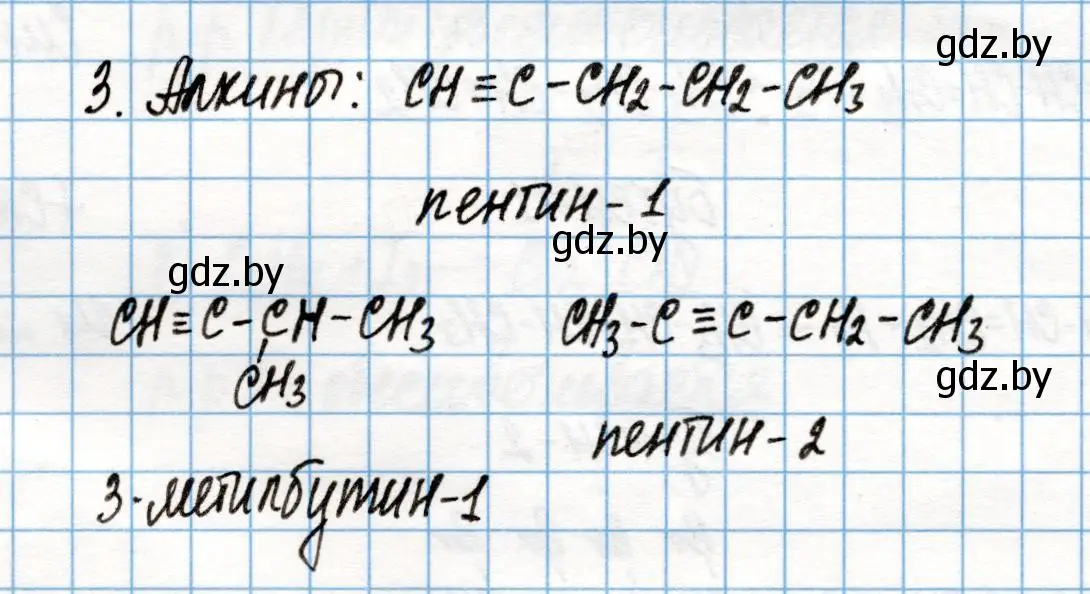 gdz.by
3. Алкины: CH≡C-CH2-CH2-CH3
пентин-1
gdz.by
gdz.by
CH≡C-CH-CH3 CH3-C≡C-CH2-CH3
CH3
gdz.by
пентин-2
3-метилбутин-1